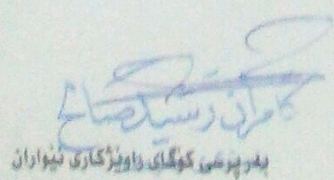 کامران رشید صالح
بەرپرسی کۆگای راوێژکاری نێواران